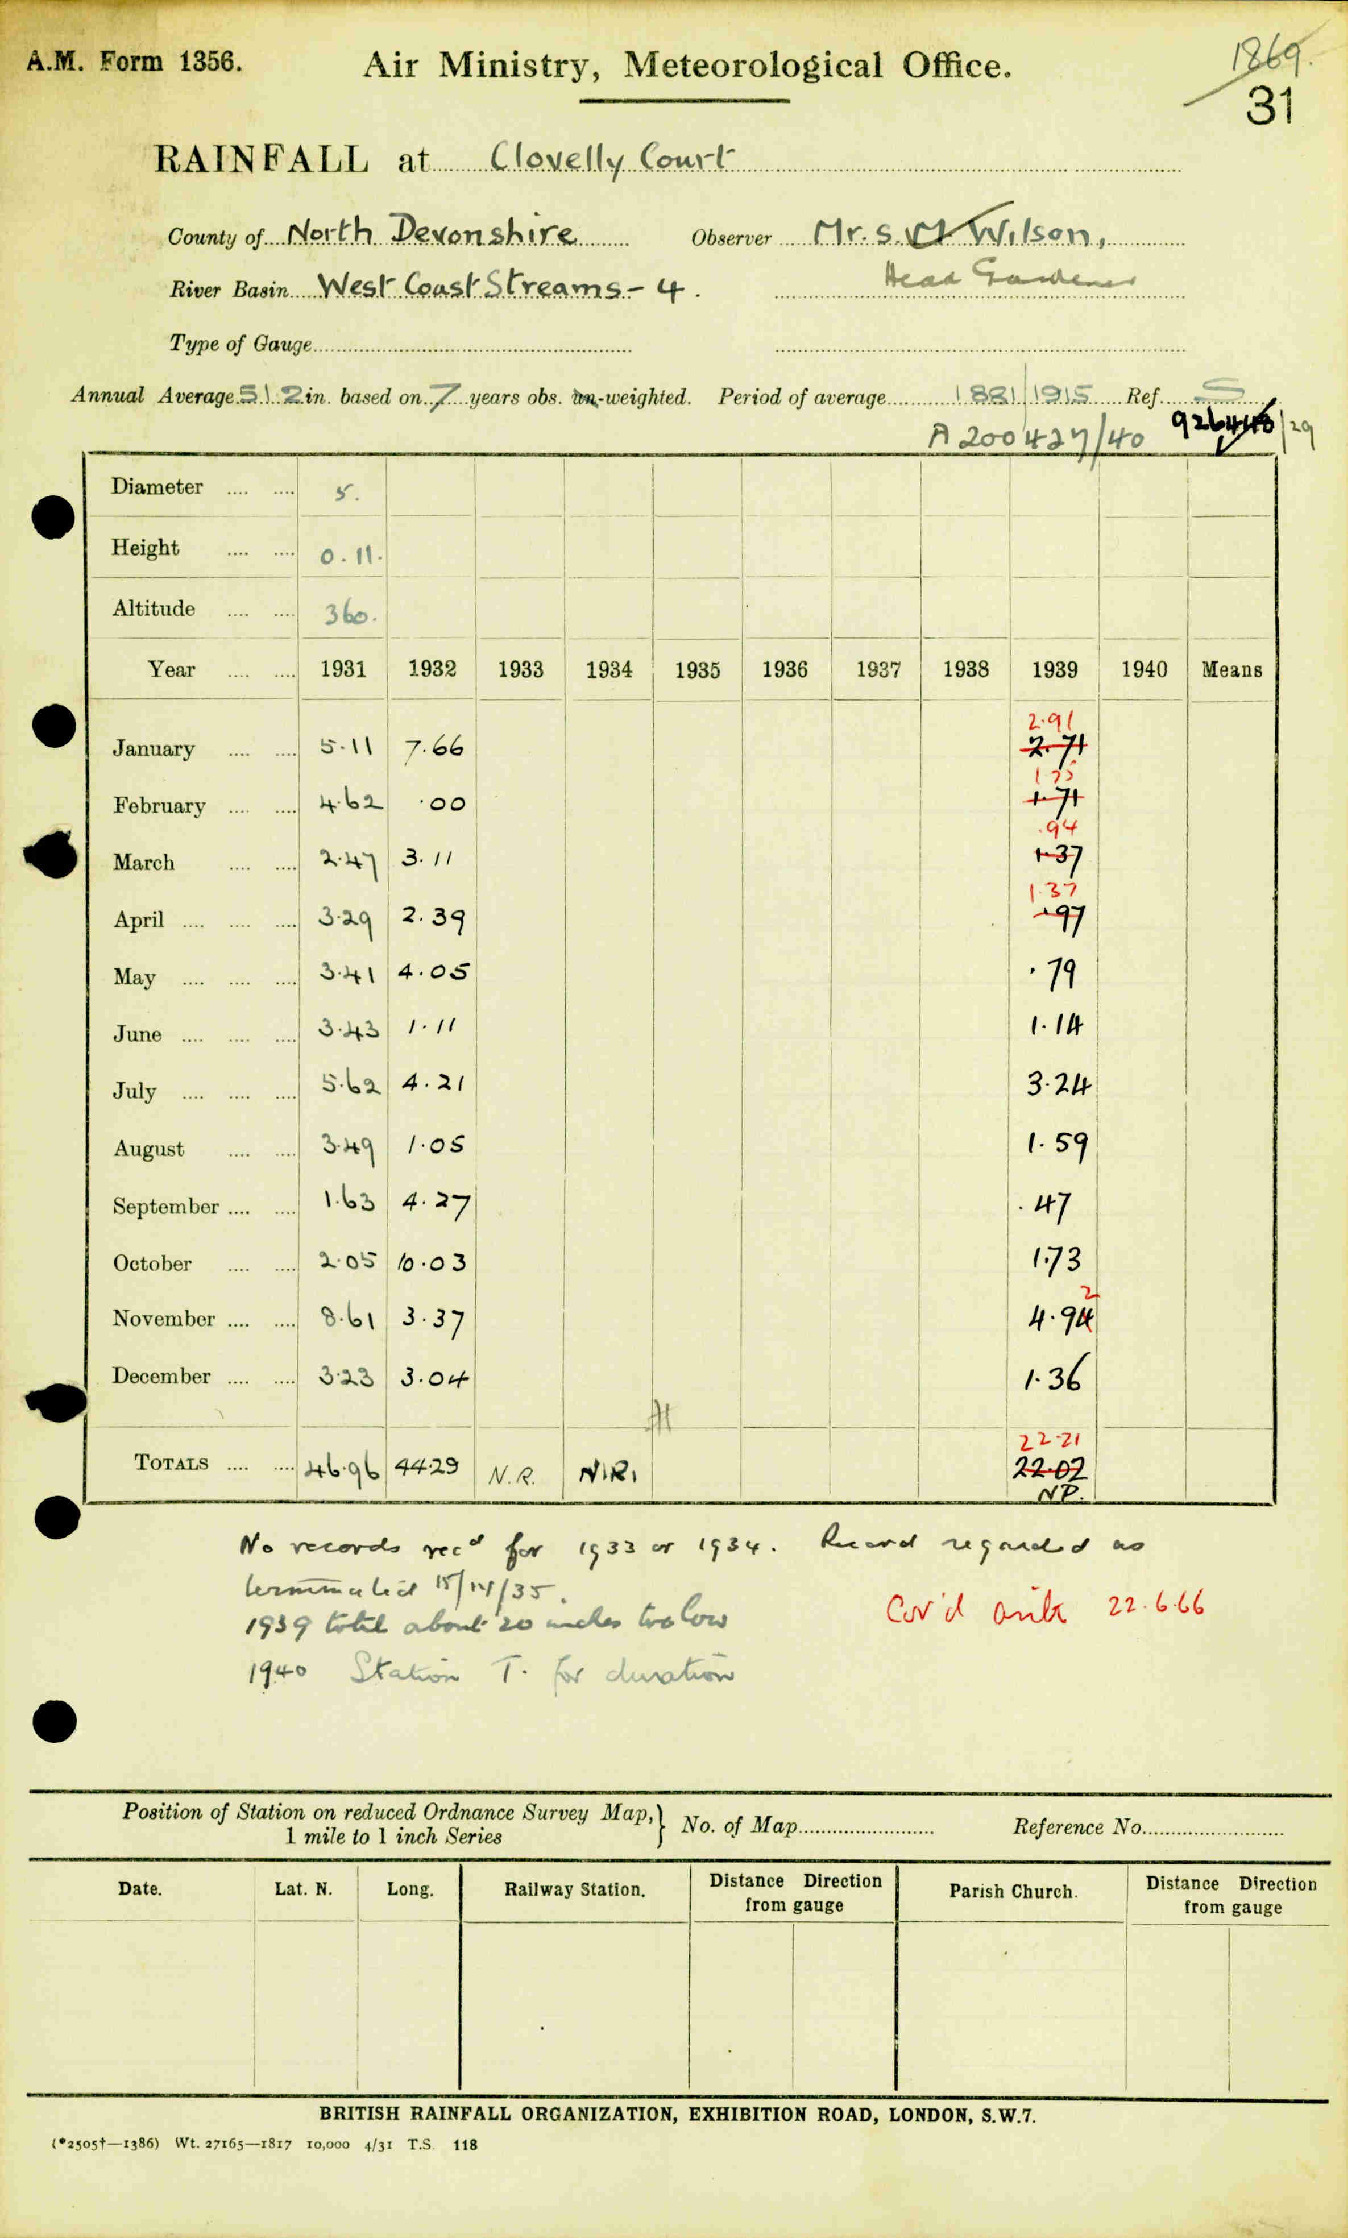 A.M. Form 1356.
Air Ministry, Meteorological Office.
1869.
31
RAINFALL at Clovelly Court
County of North Devonshire Observer Mr. S. M. Wilson,
River Basin West Coast Streams - 4. Head Gardener
Type of Gauge
Annual Average 51.2 in. based on 7 years obs. un-weighted. Period of average 1881 1915 Ref. S
A 200427/40 /29
Diameter 5.
Height 0.11.
Altitude 360.
Year 1931 1932 1933 1934 1935 1936 1937 1938 1939 1940 Means
2.91
January 5.11 7.66 2.71
February 4.62 .00 1.71
.94
March 2.47 3.11 1.37
1.37
April 3.29 2.39 .97
May 3.41 4.05 .79
June 3.43 1.11 1.14
July 5.62 4.21 3.24
August 3.49 1.05 1.59
September 1.63 4.27 .47
October 2.05 10.03 1.73
2
November 8.61 3.37 4.94
December 3.23 3.04 1.36
22.21
TOTALS 46.96 44.29 N.R. N.R. 22.02
NP.
No records rec'd for 1933 or 1934. Record regarded as
terminated 15/14/35.
1939 total about 20 inches too low
Cor'd arith 22.6.66
1940 Station T. for duration
Position of Station on reduced Ordnance Survey Map,} No. of Map Reference No.
1 mile to 1 inch Series
Date. Lat. N. Long. Railway Station. Distance Direction from gauge Parish Church. Distance Direction from gauge
BRITISH RAINFALL ORGANIZATION, EXHIBITION ROAD, LONDON, S.W.7.
(*2505†—1386) Wt. 27165—1817 10,000 4/31 T.S. 118